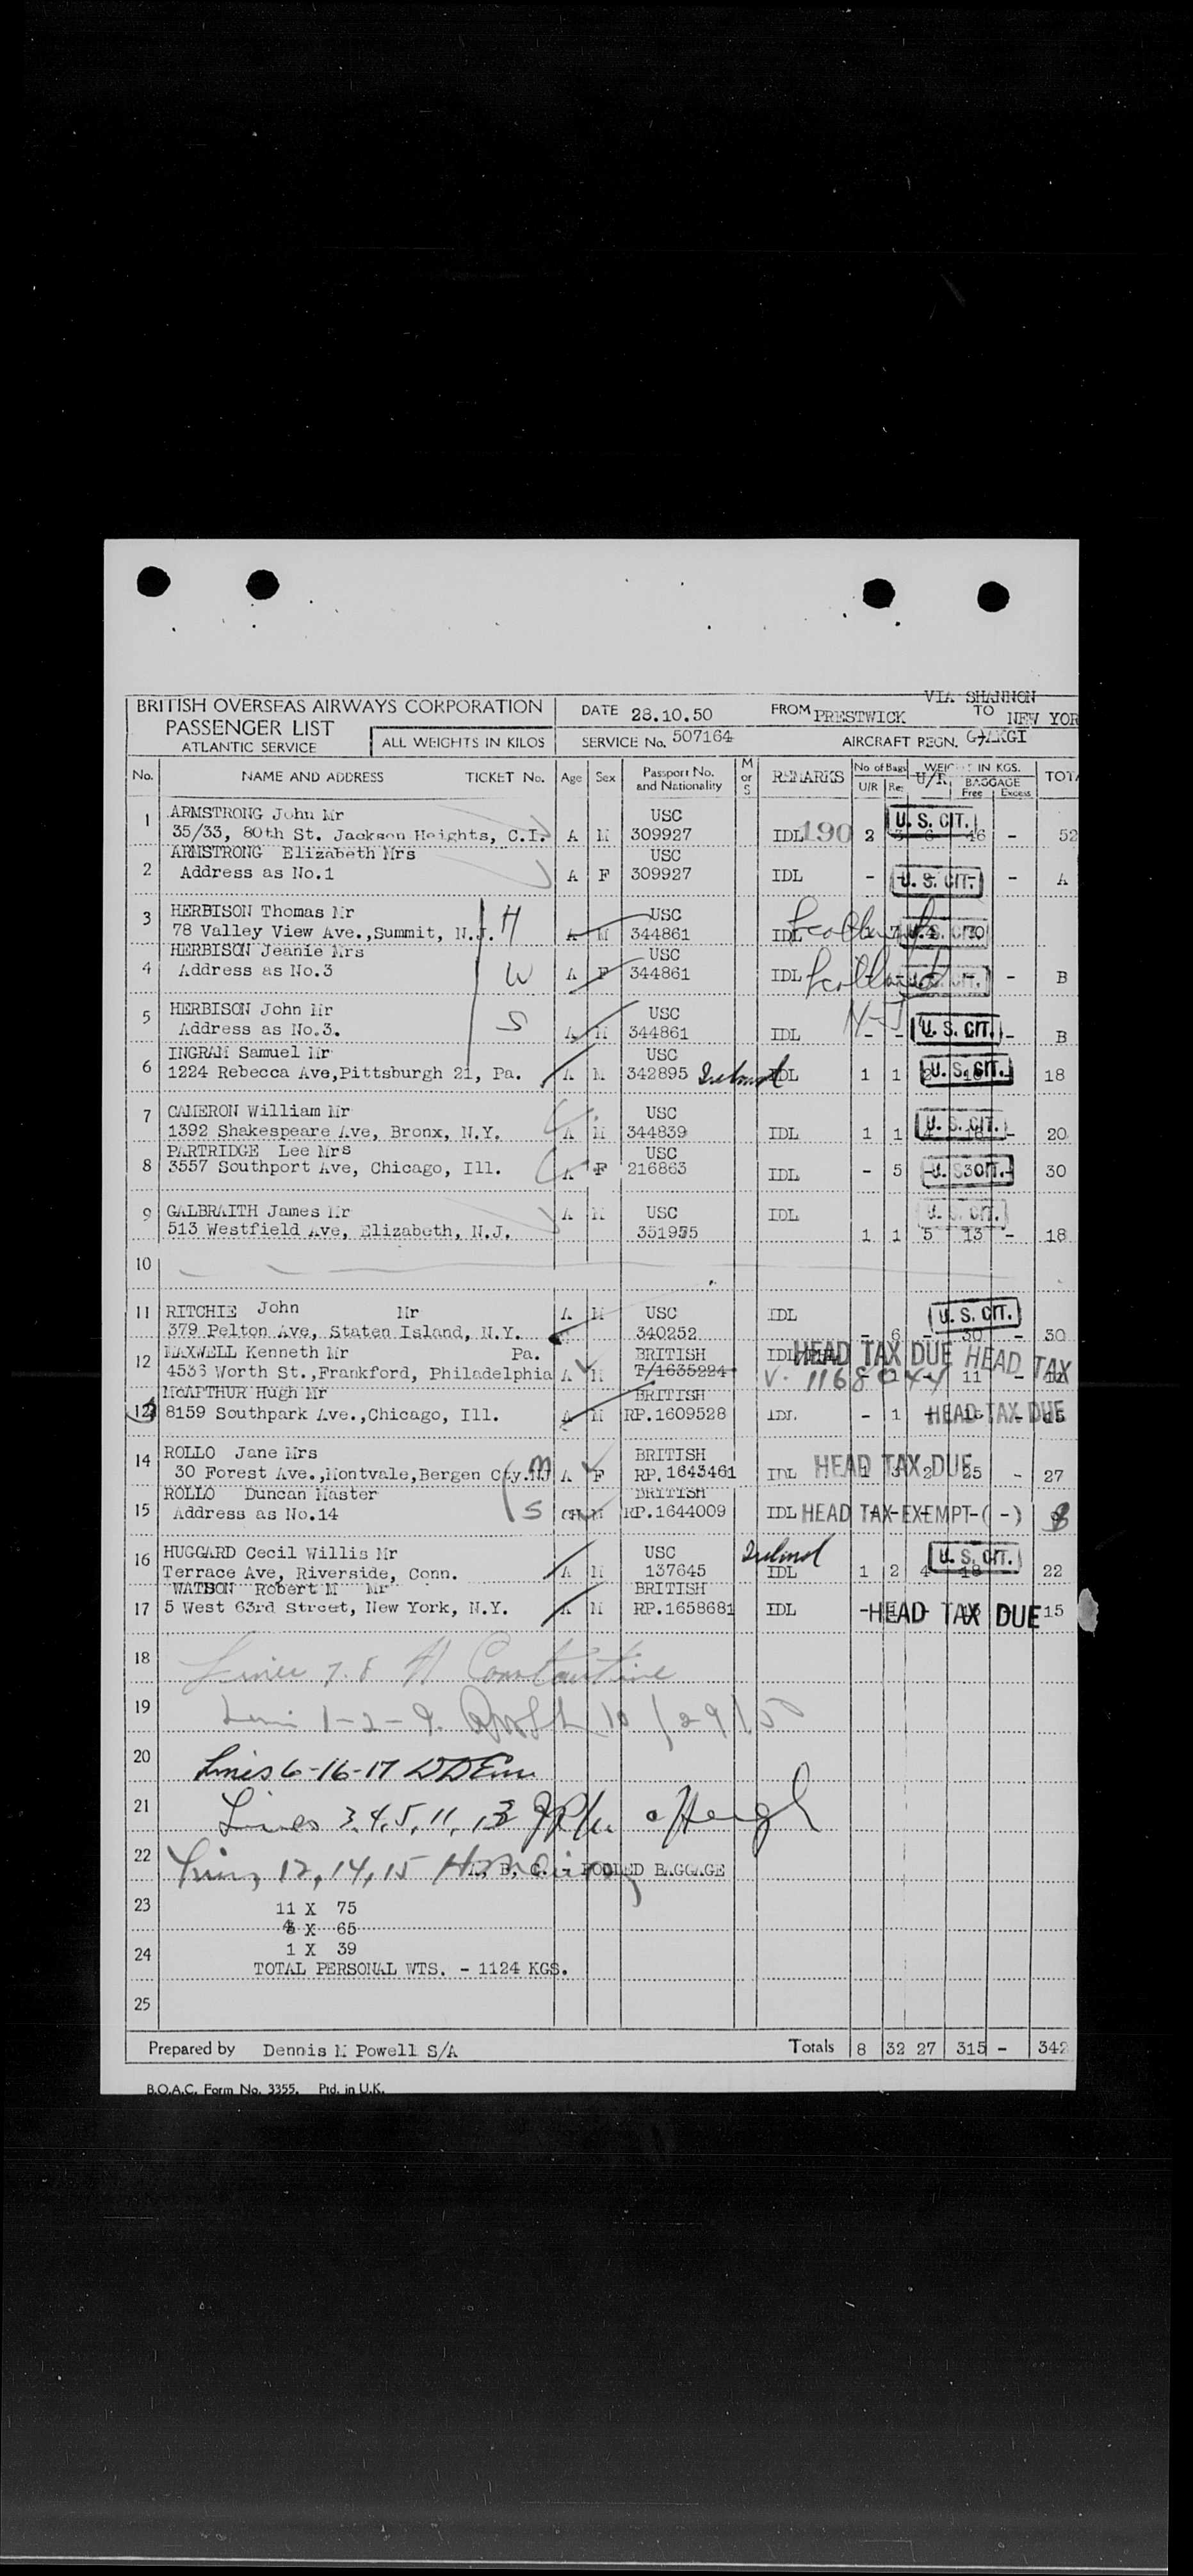 VIA SHANNON
BRITISH OVERSEAS AIRWAYS CORPORATION DATE 28.10.50 FROM PRESTWICK TO NEW YOR
PASSENGER LIST
ATLANTIC SERVICE ALL WEIGHTS IN KILOS SERVICE No. 507164 AIRCRAFT REGN.
No. NAME AND ADDRESS TICKET No. Age Sex Passport No. and Nationality M or S REMARKS No of Bags U/R Reg WEIGHTS IN KGS. U/R BAGGAGE Free Excess TOTA
1 ARMSTRONG John Mr USC U. S. CIT.
35/33, 80th St. Jackson Heights, C.I. A M 309927 IDL 190 2 3 6 46 - 52
ARMSTRONG Elizabeth Mrs USC
2 Address as No.1 A F 309927 IDL - U. S. CIT. - A
3 HERBISON Thomas Mr H USC
78 Valley View Ave.,Summit, N.J. A M 344861 IDL Scotland U. S. CIT. 70
HERBISON Jeanie Mrs USC
4 Address as No.3 W A F 344861 IDL Scotland U. S. CIT. - B
5 HERBISON John Mr S USC N-J
Address as No.3. A M 344861 IDL - - U. S. CIT. - B
INGRAM Samuel Mr USC
6 1224 Rebecca Ave,Pittsburgh 21, Pa. A M 342895 Ireland IDL 1 1 2 16 U. S. CIT. 18
7 CAMERON William Mr USC U. S. CIT.
1392 Shakespeare Ave, Bronx, N.Y. A M 344839 IDL 1 1 - 20
PARTRIDGE Lee Mrs USC
8 3557 Southport Ave, Chicago, Ill. A F 216863 IDL - 5 - U. S. CIT. 30 - 30
9 GALBRAITH James Mr A M USC IDL U. S. CIT.
513 Westfield Ave, Elizabeth, N.J. 351955 1 1 5 13 - 18
10
11 RITCHIE John Mr A M USC IDL U. S. CIT.
379 Pelton Ave, Staten Island, N.Y. 340252 - 6 - 30 - 30
MAXWELL Kenneth Mr Pa. BRITISH IDL HEAD TAX DUE HEAD TAX
12 4533 Worth St.,Frankford, Philadelphia A M T/1635224 V. 1168044 11 -
McARTHUR Hugh Mr BRITISH
13 8159 Southpark Ave.,Chicago, Ill. A M RP.1609528 IDL - 1 HEAD TAX DUE
14 ROLLO Jane Mrs M BRITISH
30 Forest Ave.,Montvale,Bergen Cty.NJ A F RP.1643461 IDL HEAD TAX DUE 1 3 2 25 - 27
ROLLO Duncan Master BRITISH
15 Address as No.14 S CH M RP.1644009 IDL HEAD TAX EXEMPT-( -)
16 HUGGARD Cecil Willis Mr USC Ireland U. S. CIT.
Terrace Ave, Riverside, Conn. A M 137645 IDL 1 2 4 18 22
WATSON Robert M Mr BRITISH
17 5 West 63rd Street, New York, N.Y. A M RP.1658681 IDL - HEAD TAX DUE 15
18 Lines 7. 8 Constantine
19 Lines 1-2-9. 10/29/50
20 Lines 6-16-17
21 Lines 3,4,5,11,13
22 Lines 12,14,15 POOLED BAGGAGE
23 11 X 75
X 65
24 1 X 39
TOTAL PERSONAL WTS. - 1124 KGS.
25
Prepared by Dennis M Powell S/A Totals 8 32 27 315 - 342
B.O.A.C. Form No. 3355. Ptd. in U.K.